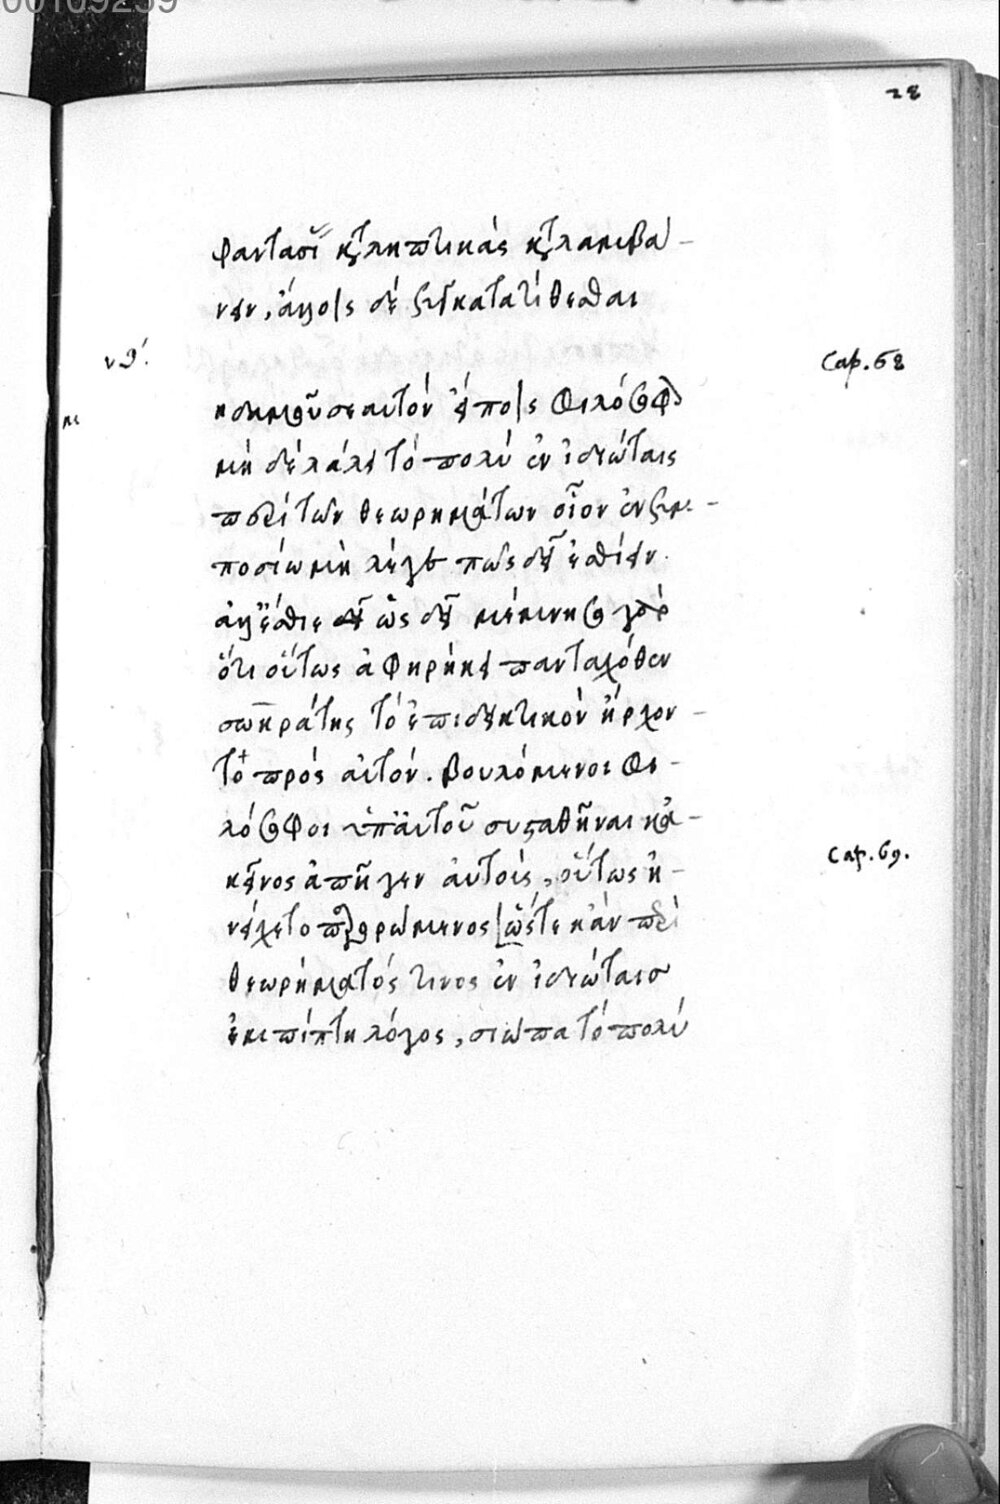 28
φαντασί καταληπτικάς καταλαμβά-
νειν, ἄλλοις δέ συγκατατίθεσθαι
νθ΄.
Cap. 68
ηδαμοῦ σεαυτόν εἴποις φιλόσοφον
μὴ δέ λάλει τό πολύ ἐν ἰδιώταις
περί τῶν θεωρημάτων οἷον ἐν συμ-
ποσίω μὴ λέγε πῶς δεῖ ἐσθίειν.
ἀλλ' ἔσθιε ὡς δεῖ μέμνησο γάρ
ὅτι οὕτως ἀφηρήκει πανταχόθεν
σωκράτης τό ἐπιδεικτικόν ἤρχον-
το πρός αὐτόν. βουλόμενοι φι-
λόσοφοι ὑπ' αὐτοῦ συσταθῆναι κἀ-
Cap. 69.
κεῖνος ἀπῆγεν αὐτούς, οὕτως ἠ-
νείχετο παρορώμενος ὥστε κἄν περί
θεωρήματός τινος ἐν ἰδιώταισ
ἐμπίπτη λόγος, σιώπα τό πολύ